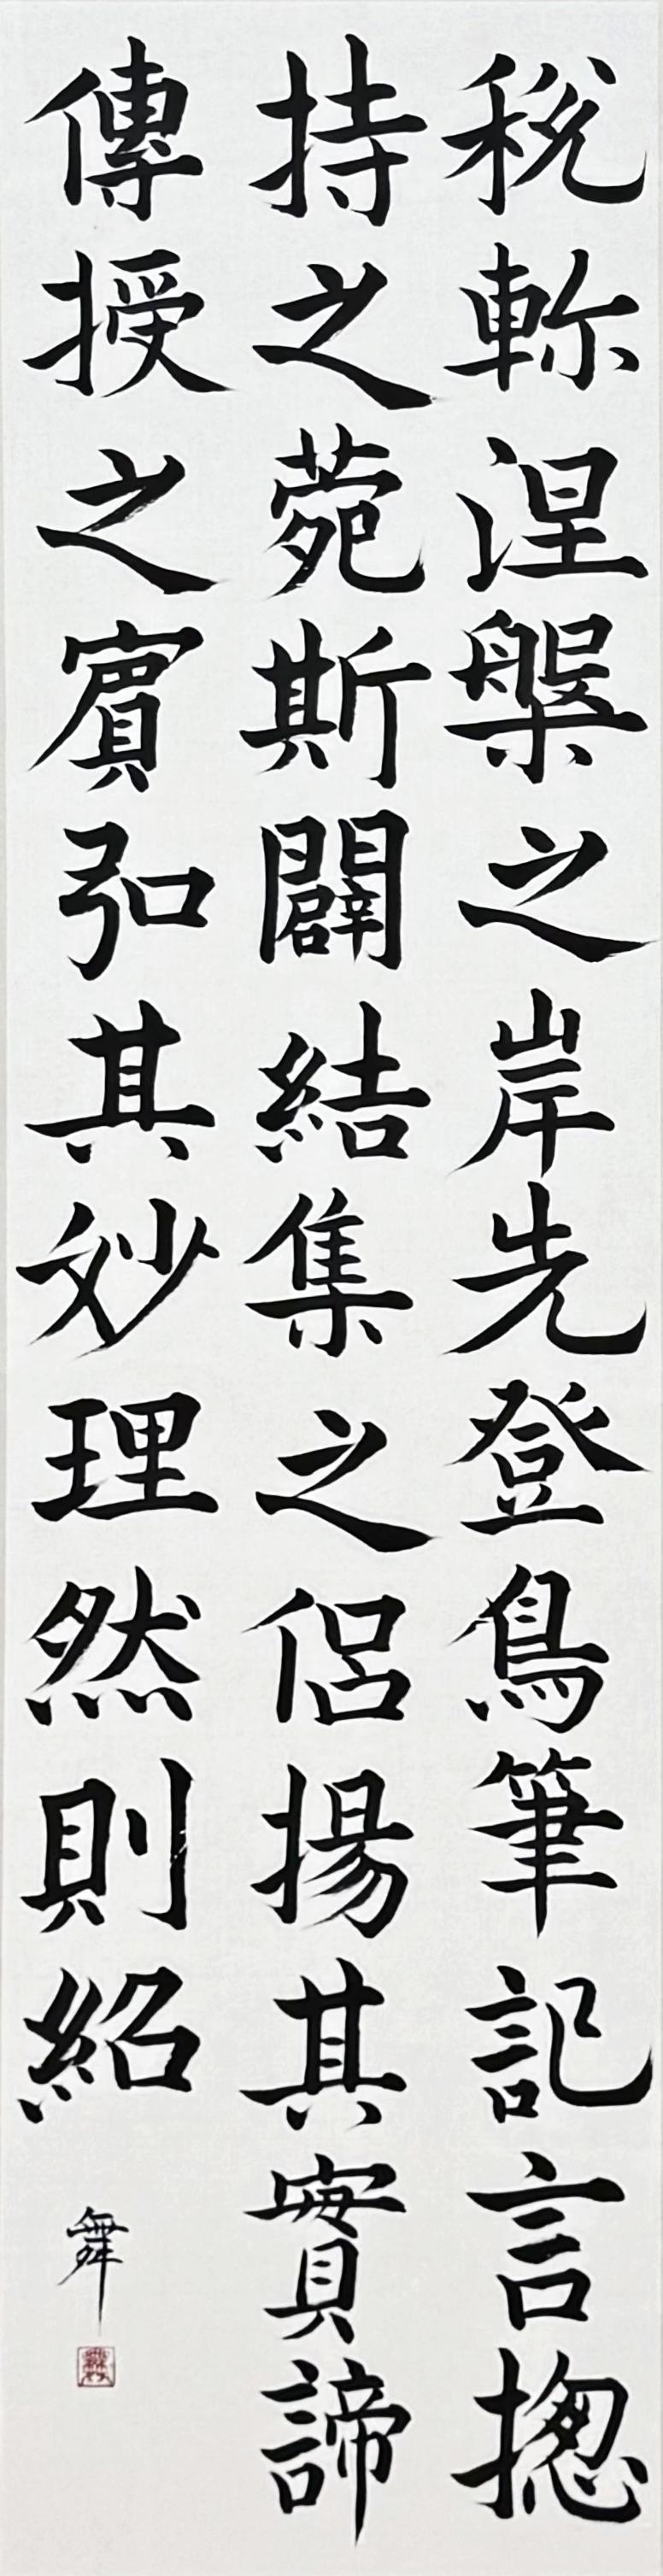 稅軫涅槃之岸先登鳥筆記言揔
持之菀斯闢結集之侶揚其實諦
傳授之賓弘其妙理然則紹
舞